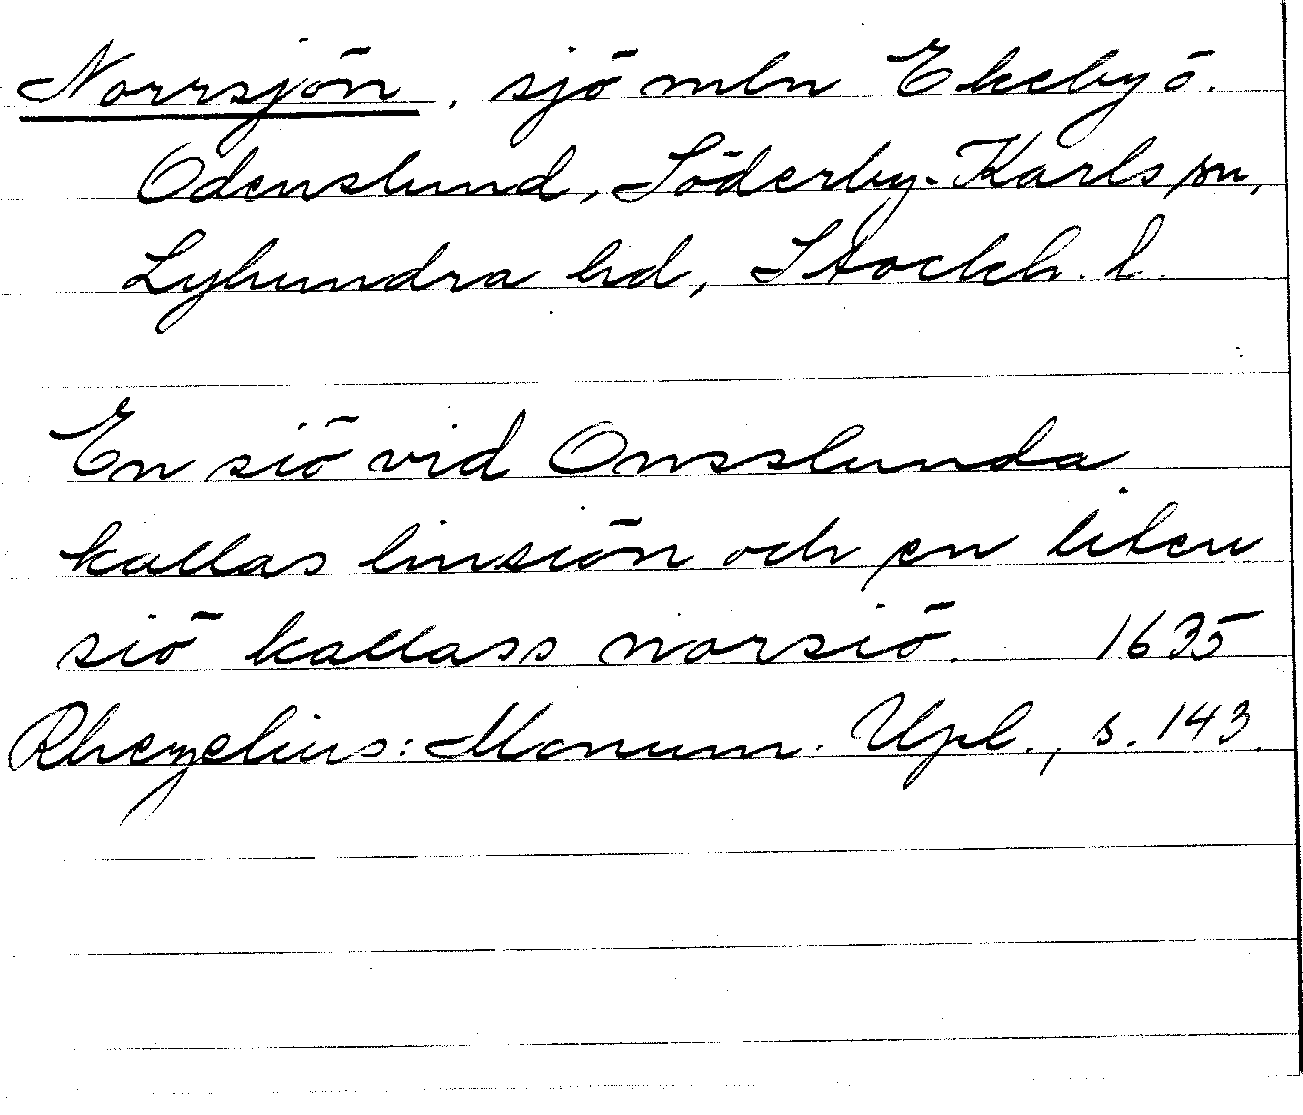 Norrsjön, sjö mln Ekeby o.
Odenslund, Söderby-Karls sn,
Lyhundra hd, Stockh. l.
En siö vid Onsslunda
kallas linsiön och en liten
siö kallass norsiö. 1635
Rhezelius: Monum. Upl., s. 143.